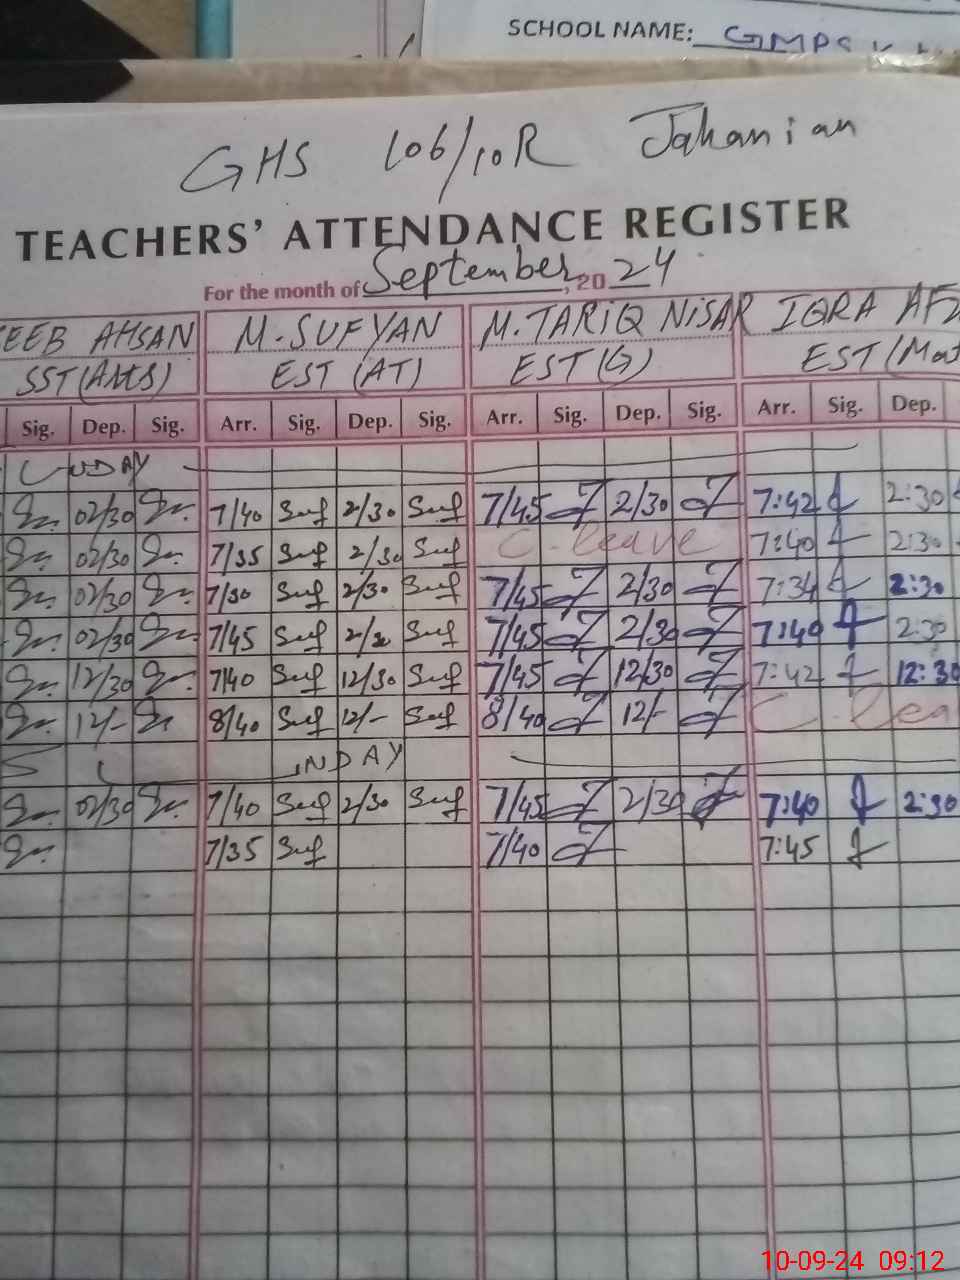 SCHOOL NAME: GMPS
GHS 106/10R Jahanian
TEACHERS' ATTENDANCE REGISTER
For the month of September, 2024
EEB AHSAN M. SUFYAN M. TARIQ NISAR IQRA AFZ
SST(AHS) EST (AT) EST(G) EST(Mat
Sig. Dep. Sig. Arr. Sig. Dep. Sig. Arr. Sig. Dep. Sig. Arr. Sig. Dep.
UNDAY
02/30 7/40 Suf 2/30 Suf 7/45 2/30 7:42 2:30
02/30 7/35 Suf 2/30 Suf C. leave 7:40 2:30
02/30 7/30 Suf 2/30 Suf 7/45 2/30 7:34 2:30
02/30 7/45 Suf Suf 7/45 2/30 7:40 2:30
12/30 7/40 Suf 12/30 Suf 7/45 12/30 7:42 12:30
12/- 8/40 Suf 12/- Suf 8/40 12/- C. lea
S UNDAY
02/30 7/40 Suf 2/30 Suf 7/45 2/30 7:40 2:30
7/35 Suf 7/40 7:45
10-09-24 09:12